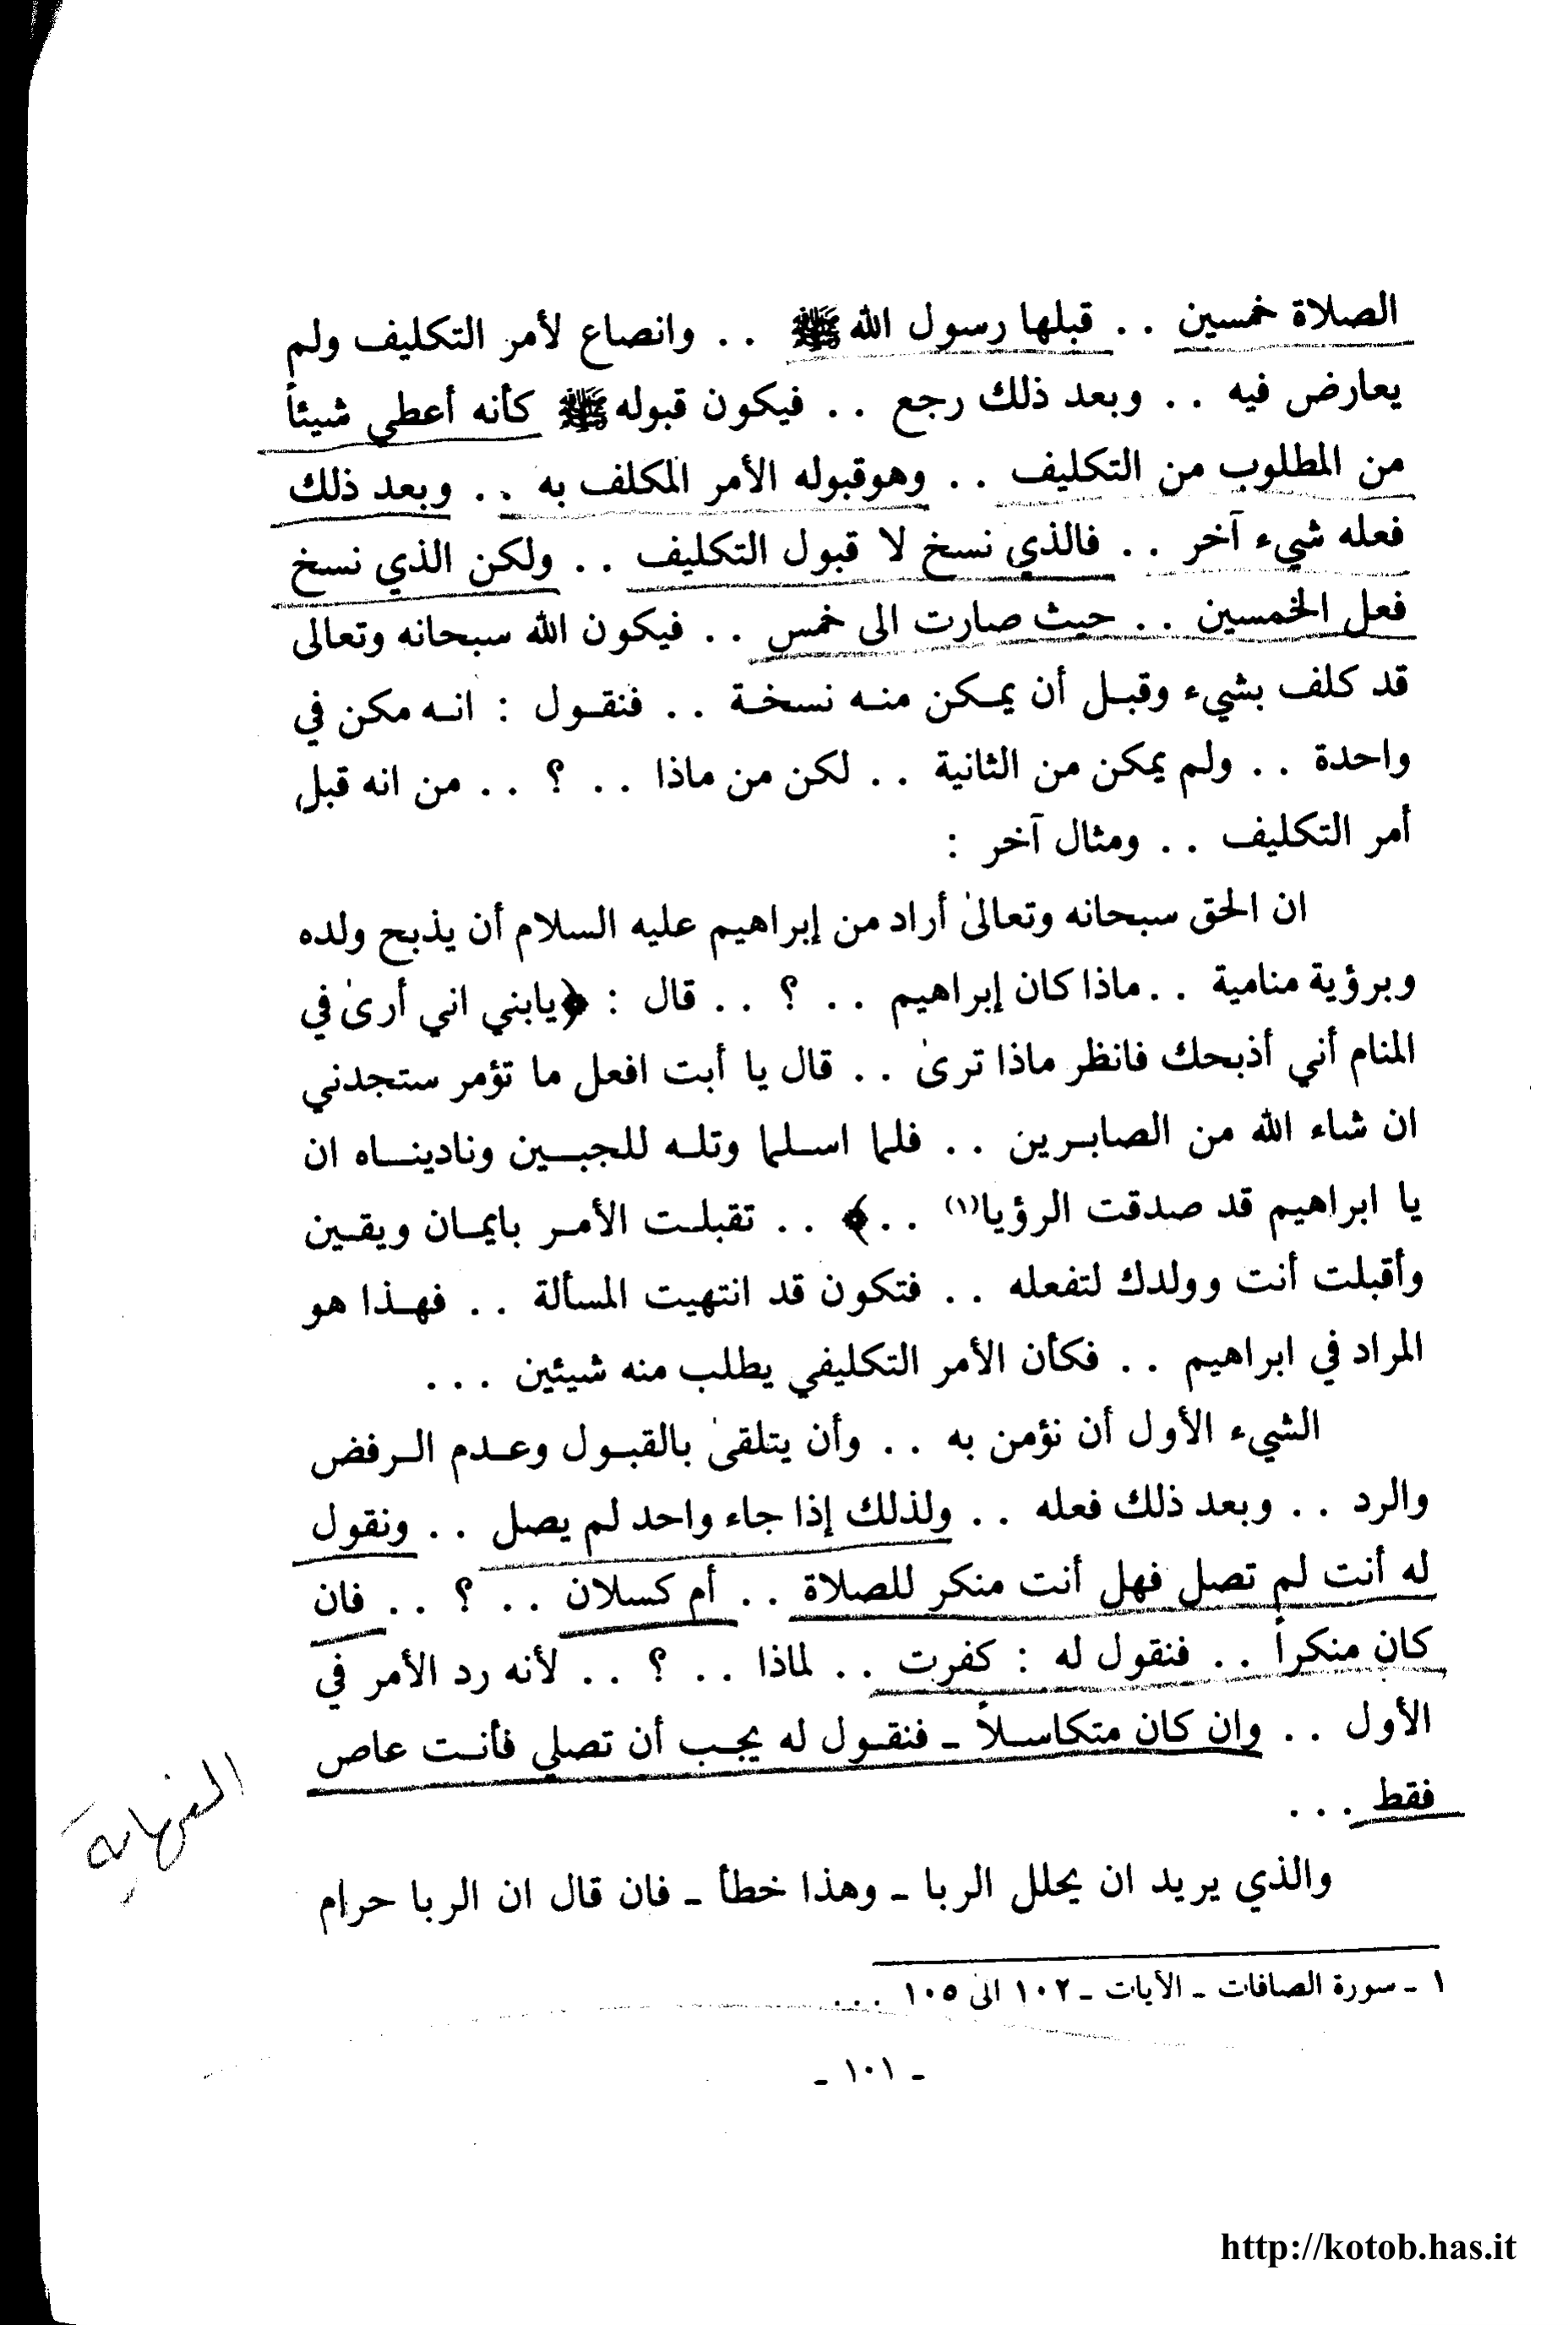 الصلاة خمسين . . قبلها رسول الله ﷺ . . وانصاع لأمر التكليف ولم
يعارض فيه . . وبعد ذلك رجع . . فيكون قبوله ﷺ كأنه أعطي شيئاً
من المطلوب من التكليف . . وهوقبوله الأمر المكلف به . . وبعد ذلك
فعله شيء آخر . . فالذي نسخ لا قبول التكليف . . ولكن الذي نسخ
فعل الخمسين . . حيث صارت الى خمس . . فيكون الله سبحانه وتعالى
قد كلف بشيء وقبل أن يمكن منه نسخة . . فنقول : انه مكن في
واحدة . . ولم يمكن من الثانية . . لكن من ماذا . . ؟ . . من انه قبل
أمر التكليف . . ومثال آخر :
ان الحق سبحانه وتعالىٰ أراد من إبراهيم عليه السلام أن يذبح ولده
وبرؤية منامية . . ماذا كان إبراهيم . . ؟ . . قال : ﴿يابني اني أرىٰ في
المنام أني أذبحك فانظر ماذا ترىٰ . . قال يا أبت افعل ما تؤمر ستجدني
ان شاء الله من الصابرين . . فلما اسلما وتله للجبين وناديناه ان
يا ابراهيم قد صدقت الرؤيا(١) . . ﴾ . . تقبلت الأمر بايمان ويقين
وأقبلت أنت وولدك لتفعله . . فتكون قد انتهيت المسألة . . فهذا هو
المراد في ابراهيم . . فكأن الأمر التكليفي يطلب منه شيئين . . .
الشيء الأول أن نؤمن به . . وأن يتلقىٰ بالقبول وعدم الرفض
والرد . . وبعد ذلك فعله . . ولذلك إذا جاء واحد لم يصل . . ونقول
له أنت لم تصل فهل أنت منكر للصلاة . . أم كسلان . . ؟ . . فان
كان منكراً . . فنقول له : كفرت . . لماذا . . ؟ . . لأنه رد الأمر في
الأول . . وان كان متكاسلاً ـ فنقول له يجب أن تصلي فأنت عاص
فقط . . .
النهاية
والذي يريد ان يحلل الربا ـ وهذا خطأ ـ فان قال ان الربا حرام
١ ـ سورة الصافات ـ الأيات ـ ١٠٢ الىٰ ١٠٥ . . .
ـ ١٠١ ـ
http://kotob.has.it